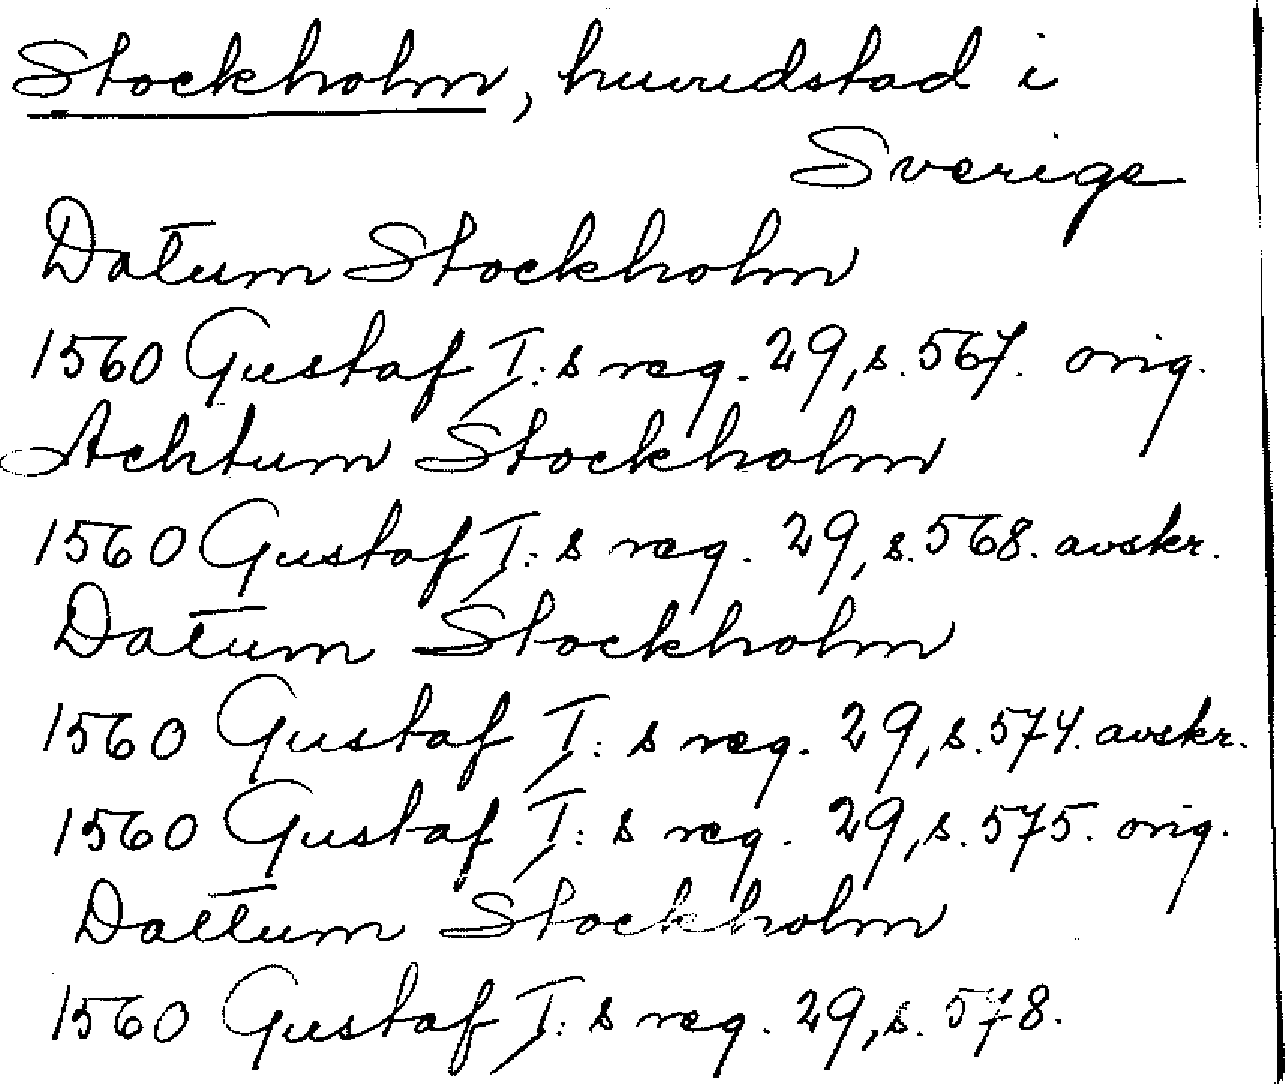 Stockholm, huvudstad i
Sverige
Datum Stockholm
1560 Gustaf I:s reg. 29, s. 567. orig.
Achtum Stockholm
1560 Gustaf I:s reg. 29, s. 568. avskr.
Datum Stockholm
1560 Gustaf I:s reg. 29, s. 574. avskr.
1560 Gustaf I:s reg. 29, s. 575. orig.
Dattum Stockholm
1560 Gustaf I:s reg. 29, s. 578.